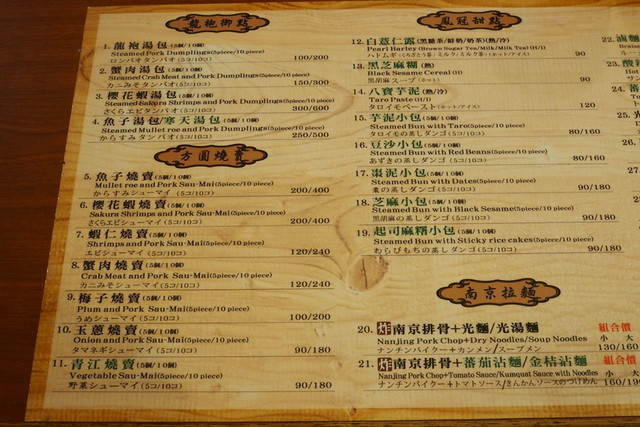 龍袍御點
1. 龍袍湯包(5個/10個)
Steamed Pork Dumplings(5piece/10 piece)
ロンパオタンパオ(5コ/10コ) 100/200
2. 蟹肉湯包(5個/10個)
Steamed Crab Meat and Pork Dumplings(5piece/10 piece)
カニみそタンパオ(5コ/10コ) 150/300
3. 櫻花蝦湯包(5個/10個)
Steamed Sakura Shrimps and Pork Dumplings(5piece/10 piece)
さくらエビタンパオ(5コ/10コ) 300/600
4. 魚子湯包/寒天湯包(5個/10個)
Steamed Mullet roe and Pork Dumplings(5piece/10 piece)
からすみタンパオ(5コ/10コ) 250/500
方圓燒賣
5. 魚子燒賣(5個/10個)
Mullet roe and Pork Sau-Mai(5piece/10 piece)
からすみシューマイ(5コ/10コ) 200/400
6. 櫻花蝦燒賣(5個/10個)
Sakura Shrimps and Pork Sau-Mai(5piece/10 piece)
さくらエビシューマイ(5コ/10コ) 200/400
7. 蝦仁燒賣(5個/10個)
Shrimps and Pork Sau-Mai(5piece/10 piece)
エビシューマイ(5コ/10コ) 120/240
8. 蟹肉燒賣(5個/10個)
Crab Meat and Pork Sau-Mai(5piece/10 piece)
カニみそシューマイ(5コ/10コ) 120/240
9. 梅子燒賣(5個/10個)
Plum and Pork Sau-Mai(5piece/10 piece)
うめシューマイ(5コ/10コ) 100/200
10. 玉蔥燒賣(5個/10個)
Onion and Pork Sau-Mai(5piece/10 piece)
タマネギシューマイ(5コ/10コ) 90/180
11. 青江燒賣(5個/10個)
Vegetable Sau-Mai(5piece/10 piece)
野菜シューマイ(5コ/10コ) 90/180
鳳冠甜點
12. 白薏仁露(黑糖茶/鮮奶/奶茶)(熱/冷)
Pearl Barley (Brown Sugar Tea/Milk/Milk Tea)(H/I)
ハトムギ(くろざとう茶・ミルク・ミルク茶)(ホット/アイス) 90
13. 黑芝麻糊(熱)
Black Sesame Cereal (H)
黒胡麻スープ(ホット) 90
14. 八寶芋泥(熱/冷)
Taro Paste (H/I)
タロイモペースト(ホット/アイス) 120
15. 芋泥小包(5個/10個)
Steamed Bun with Taro(5piece/10 piece)
タロイモの蒸しダンゴ(5コ/10コ) 80/160
16. 豆沙小包(5個/10個)
Steamed Bun with Red Beans(5piece/10 piece)
あずきの蒸しダンゴ(5コ/10コ) 80/160
17. 棗泥小包(5個/10個)
Steamed Bun with Dates(5piece/10 piece)
棗の蒸しダンゴ(5コ/10コ) 90/180
18. 芝麻小包(5個/10個)
Steamed Bun with Black Sesame(5piece/10 piece)
黒胡麻の蒸しダンゴ(5コ/10コ) 90/180
19. 起司麻糬小包(5個/10個)
Steamed Bun with Sticky rice cakes(5piece/10 piece)
わらびもちの蒸しダンゴ(5コ/10コ) 90/180
南京拉麵
組合價
20. 炸南京排骨+光麵/光湯麵 小 大
Nanjing Pork Chop+Dry Noodles/Soup Noodles
ナンチンパイクー+カンメン/スープメン 130/160
組合價
21. 炸南京排骨+蕃茄沾麵/金桔沾麵 小 大
Nanjing Pork Chop+Tomato Sauce/Kumquat Sauce with Noodles
ナンチンパイクー+トマトソース/きんかんソースのつけめん 160/19
22. 滷
23. 酸
24. 蕃
25.
26.
27.